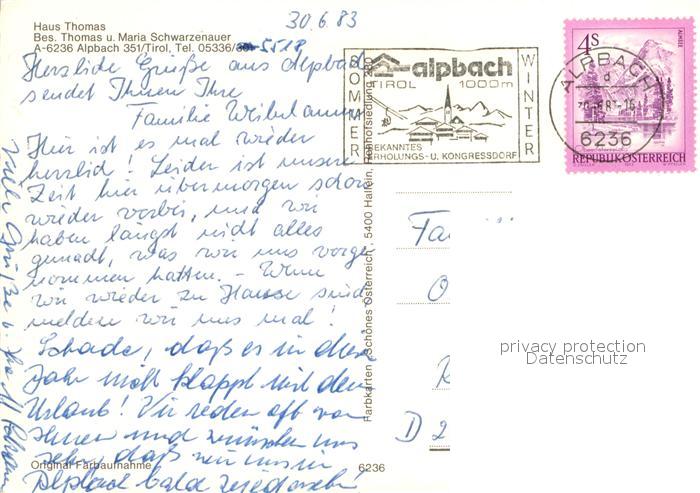 30.6.83
Haus Thomas
Bes. Thomas u. Maria Schwarzenauer
A-6236 Alpbach 351/Tirol, Tel. 05336/
5518
Herzliche Grüße aus Alpbach
sendet Ihnen Ihre
Familie
Hier ist es mal wieder
herrlich! Leider ist unsere
Zeit hier übermorgen schon
wieder vorbei, und wir
haben längst nicht alles
gemacht, was wir uns vorge-
nommen hatten. - Wenn
wir wieder zu Hause sind,
melden wir uns mal!
Schade, daß es in diesem
Jahr nicht klappt mit dem
Urlaub! Wir reden oft von
Ihnen und wünschen uns
sehr, daß wir uns in
Alpbach bald wiedersehen!
Viele Grüße
Original Farbaufnahme
6236
Farbkarten "Schönes Österreich", 5400 Hallein, Rehhofsiedlung 280
SOMMER
alpbach
TIROL 1000m
BEKANNTES
ERHOLUNGS- U. KONGRESSDORF
WINTER
ALPBACH
d
6236
4S
ALMSEE
REPUBLIK ÖSTERREICH
Fa
D 2
privacy protection
Datenschutz